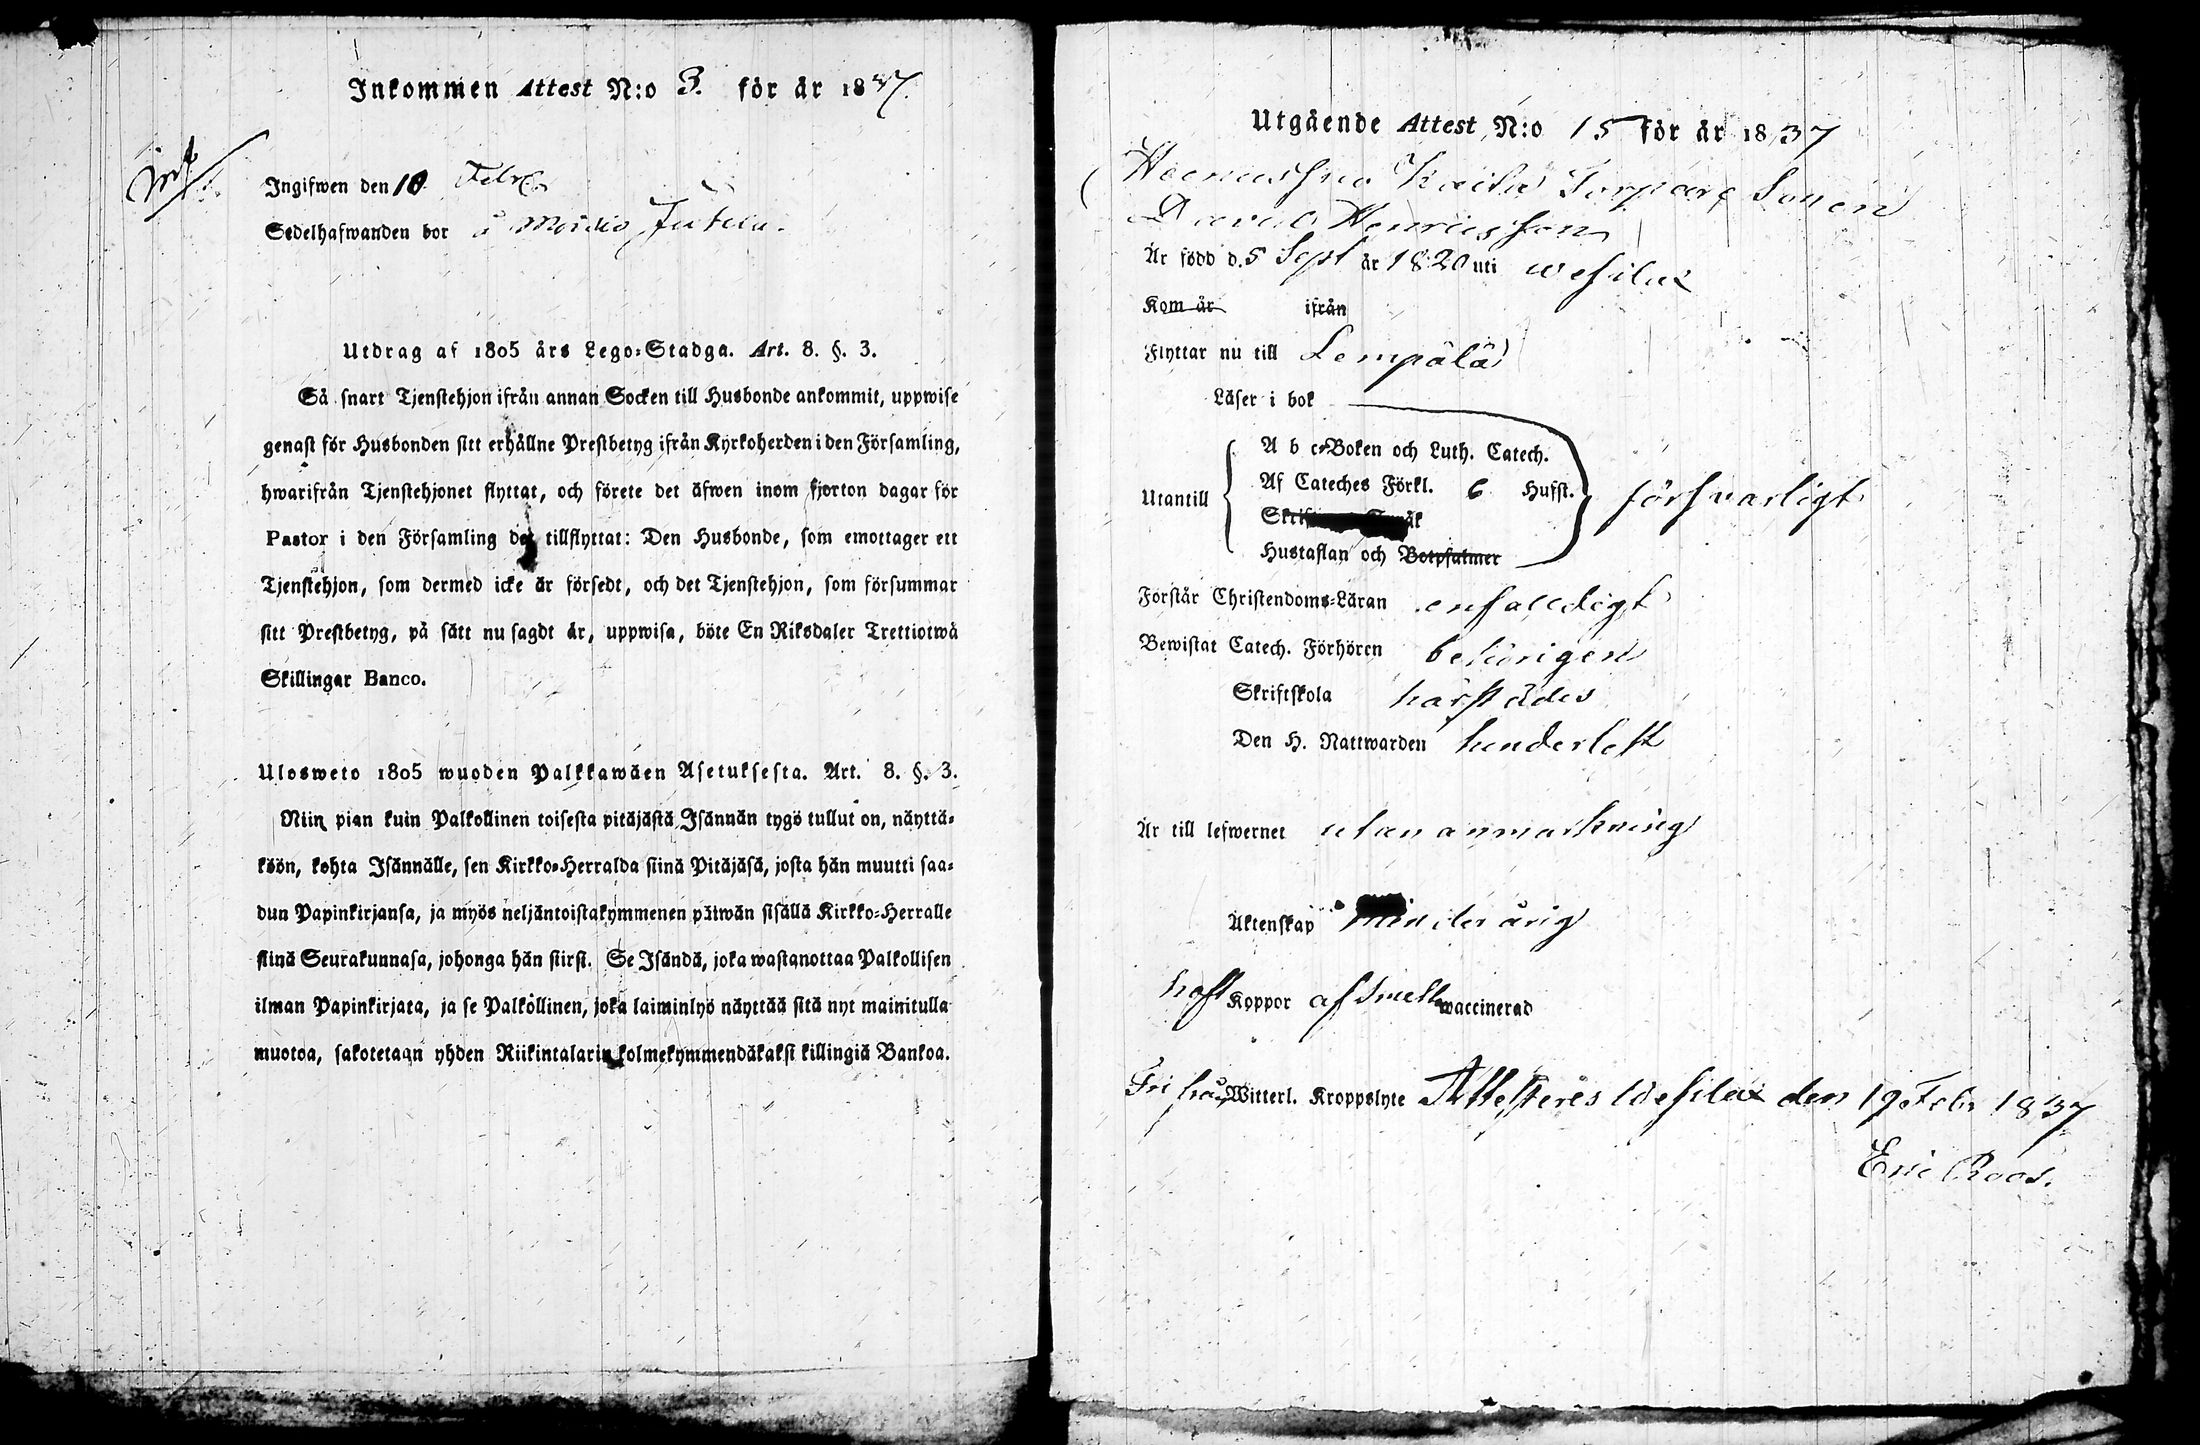 Inkommen Attest N:o 3. för år 1837.
Ingifwen den 10 Febr.
Sedelhafwanden bor å Moisio Jutila.
Utdrag af 1805 års Lego-Stadga. Art. 8. §. 3.
Så snart Tjenstehjon ifrån annan Socken till Husbonde ankommit, uppwise
genast för Husbonden sitt erhållne Prestbetyg ifrån Kyrkoherden i den Församling,
hwarifrån Tjenstehjonet flyttat, och förete det äfwen inom fjorton dagar för
Pastor i den Församling det tillflyttat: Den Husbonde, som emottager ett
Tjenstehjon, som dermed icke är försedt, och det Tjenstehjon, som försummar
sitt Prestbetyg, på sätt nu sagdt är, uppwisa, böte En Riksdaler Trettiotwå
Skillingar Banco.
Ulosweto 1805 wuoden Palkkawäen Asetuksesta. Art. 8. §. 3.
Niin pian kuin Palkollinen toisesta pitäjästä Isännän tygö tullut on, näyttä-
köön, kohta Isännälle, sen Kirkko-Herralda siinä Pitäjäsä, josta hän muutti saa-
dun Papinkirjansa, ja myös neljäntoistakymmenen päiwän sisällä Kirkko-Herralle
siinä Seurakunnasa, johonga hän siirsi. Se Isändä, joka wastanottaa Palkollisen
ilman Papinkirjata, ja se Palkollinen, joka laiminlyö näyttää sitä nyt mainitulla
muotoa, sakotetaan yhden Riikintalarin kolmekymmendäkaksi killingiä Bankoa.
Utgående Attest N:o 15 för år 1837
Torpare Sonen
David Henricsson
Är född d. 5 Sept år 1820 uti Wesilax
Kom år ifrån
Flyttar nu till Lempälä
Läser i bok
Utantill
A b c-Boken och Luth. Catech.
Af Cateches Förkl. 6 Hufst.
försvarligt
Hustaflan och Botpsalmer
Förstår Christendoms-Läran enfalldigt
Bewistat Catech. Förhören behörigen
Skriftskola härstädes
Den H. Nattwarden
Är till lefwernet utan anmärkning
Äktenskap minderårig
haft Koppor waccinerad
Fri från Witterl. Kroppslyte Attesteres Wesilax den 19 Febr 1837
Eric Roos.